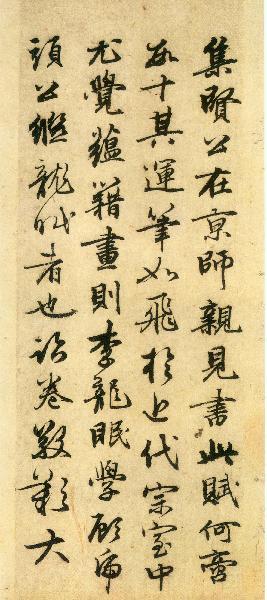 集賢公在京師親見書此賦何啻
數十其運筆如飛於近代宗室中
尤覺蘊籍畫則李龍眠學顧虎
頭公繼龍眠者也訟卷數萬大